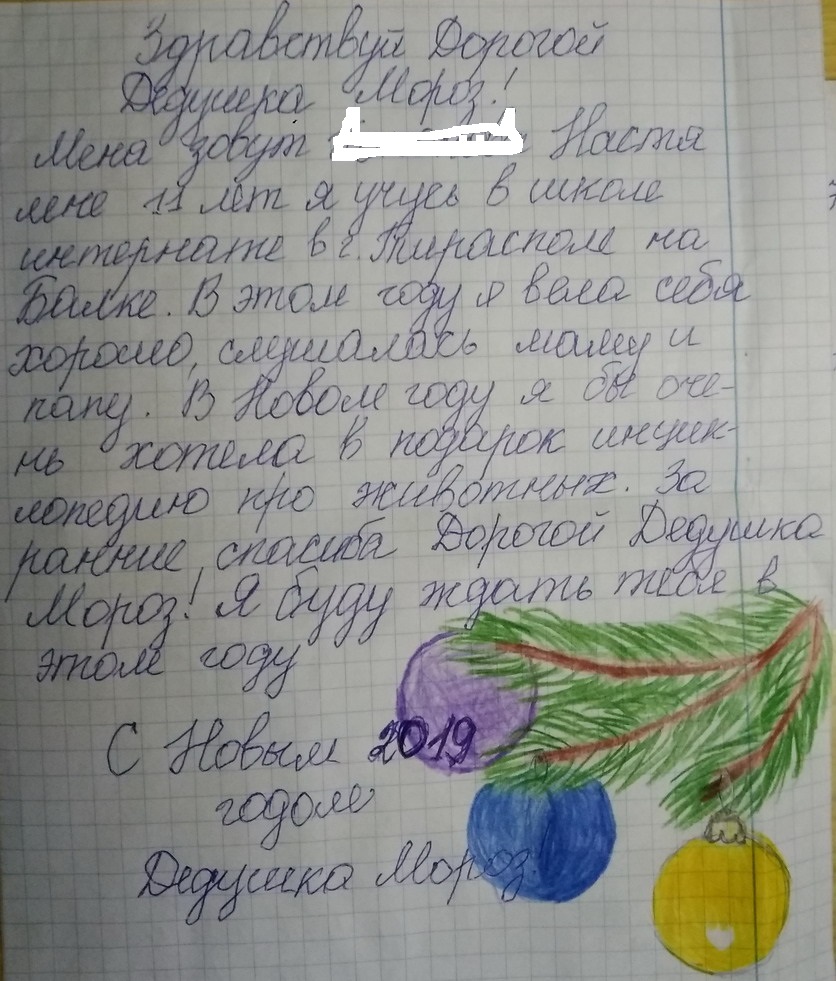 Здравствуй Дорогой
Дедушка Мороз!
Мена зовут Настя
мене 11 лет я учусь в школе
интернате в г. Тирасполе на
Балке. В этом году я вела себя
хорошо, слушалась маму и
папу. В Новом году я бы оче-
нь хотела в подарок инцик-
лопедию про животных. За
ранние спасиба Дорогой Дедушка
Мороз! Я буду ждать тебя в
этом году
С Новым 2019
годом
Дедушка Мороз!